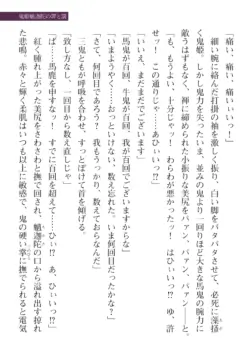 鬼姫戦記朧臣の罪と罰
「痛い、痛い、痛いいいっ！」
細い腕に絡んだ打掛の袖を激しく振り、白い脚をバタバタさせて、必死に藻掻
く鬼姫、しかし鬼力を失ったいま、並みの鬼より一回りほど大きな馬鬼の腕力に
敵うはずもなく、褌に締められた小振りな美尻をバァン、バァン、バァン――と、
「も、もうよい、十分じゃっ！　わらわが悪かったっ！　はひぃいっ!?　ゆ、許
せッ！　この通りじゃ……あひぃいっ!?」
「いいえ、まだまだでございます」
「馬鬼が百回、牛鬼が百回、我が百回でございますからな」
「ようやくやっと……おっといけない、数えるのを忘れておりました」
「おお、我も忘れた、いま何回目だったかな？」
「さて、何回目であろうか、数えておらなんだ」
三鬼ともが呼吸を合わせ、すっとぼけて首を傾げる。
「致し方なし、一回目から数え直しじゃ」
「ば、馬鹿を申すなっ！　すでに百回を超えて……ひぃ!?　あ、
ひぃいっ!?」
紅く腫れ上がった美尻をさわさわと撫で回され、魑迦陀の口から溢れ出す掠れ
た悲鳴、赤々と輝く柔肌はいつも以上に敏感で、鬼の硬い掌に撫でられると電気